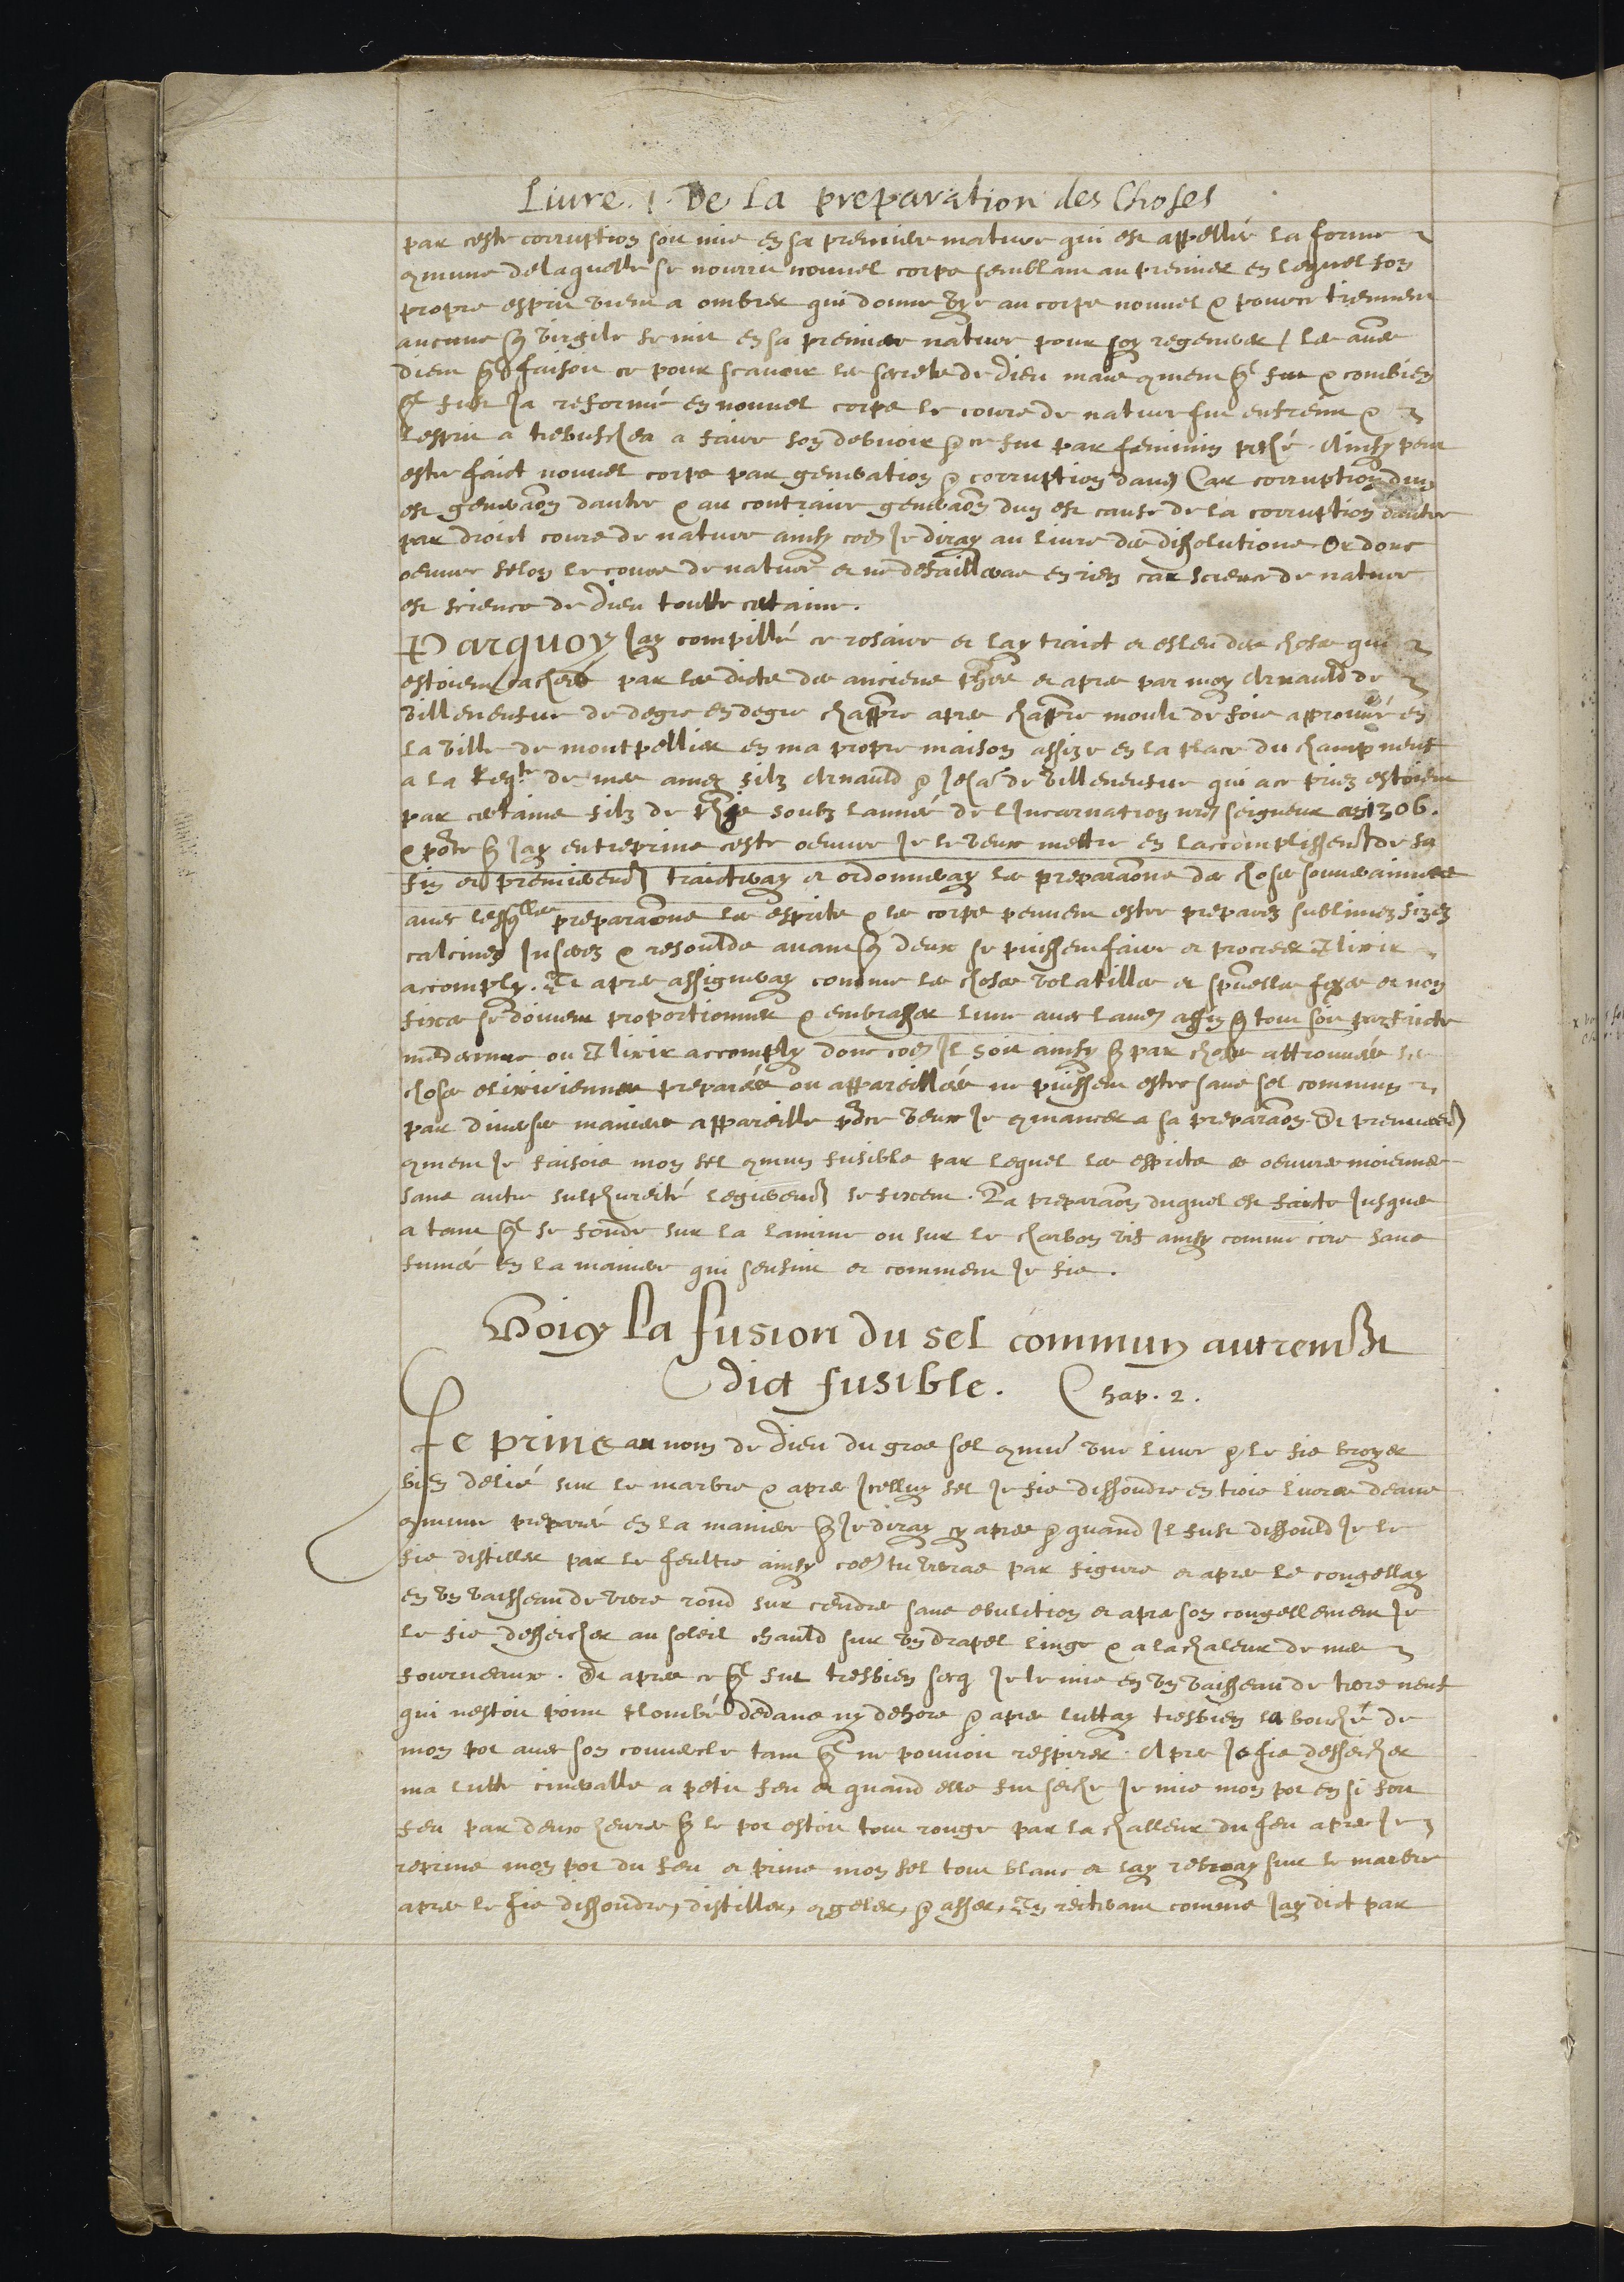 Liure. 1. De La preparation des Choses
par ceste corruption soit mis en sa premiere matiere qui est appellée la forme
9mune de laquelle se nourrit nouuel corps semblant au premier en lequel son
propre esprit vient a ombrer qui donne vye au corps nouuel & pource tiennent
aucuns q̃ virgile se mit en sa premiere nature pour soy regenerer / les aũes
dient q̃l faisoit ce pour scauoir les secrets de Dieu mais 9ment q̃l fut & combien
q̃l fust Ja reformé en nouuel corps le cours de nature fut enfreint &
lesprit a trebuscher a faire son debuoir & ce fut par feminin peché. Ainsy peut
estre faict nouuel corps par generation & corruption dans Car corruption dun
est generaõn dautre & au contraire generaõn dun est cause de la corruption dautre
par droict cours de nature ainsy coẽ Je diray au liure des dissolutions Or donc
oeuure selon le cours de nature et ne defailleras en rien car science de nature
est science de Dieu toutte certaine.
Parquoy Jay compillé ce rosaire et lay traict et esleu des choses qui
estoient cachées par les dicts des anciens phẽs et apres par moy Arnauld de
Villeneufue de degre en degre chap̃re apres chap̃re moult de fois approuué en
la ville de montpellier en ma propre maison assize en la place du champ neuf
a la Reqte de mes amez filz Arnauld & Jehã de Villeneufue qui a ce priez estoient
par certains filz de phĩe soubz lannée de lIncarnation nr̃e seigneur en 1306.
& põce q̃ Jay entreprins ceste oeuure Je le veux mettre en laccomplissemt de sa
fin et premierent traicteray et ordonneray les preparaõns des choses souueraines
auec lesq̃lles preparaõns les esprits & les corps peuuent estre preparez sublimez fixez
calcinez Incerez & resoulds auant q̃ deux se puissent faire et procréer Elixir
accomply. Et apres assigneray comme les choses volatilles et spũelles fixes et non
fixes se doiuent proportionner & embrasser lune auec lautre affin q̃ tout soit parfaicte
medecine ou Elixir accomply donc coẽ Il soit ainsy q̃ par choses attrouuées les
choses elixiriennes preparées ou appareillées ne puissent estre sans sel commun
par diuerses manieres appareille põce veux Je 9mancer a sa preparaõn Et premierent
9ment Je faisois mon sel 9mun fusible par lequel les esprits es oeuures moiennes
sans autre sulphureité legierent se fixent. La preparaõn duquel est faicte Jusques
a tant q̃l se fonde sur la lamine ou sur le charbon vif ainsy comme cire sans
fumée en la maniere qui sensuit et comment Je fis.
Voicy La fusion du sel commun autrement
dict fusible. Chap. 2.
Je prins au nom de Dieu du gros sel 9mũ vne liure & le fis broyer
bien delié sur le marbre & apres Jcelluy sel Je fis dissoudre en trois liures deaue
9mune preparée en la maniere q̃ Je diray cy apres & quand Il fust dissould Je le
fis distiller par le feultre ainsy coẽ tu verras par figure et apres le congellay
en vn vaisseau de verre rond sur cendres sans ebulition et apres son congellement Je
le fis desseicher au soleil chauld sur vn drapel linge & a la chaleur de mes
fourneaux. Et apres ce q̃l fut tresbien secq Je le mis en vn vaisseau de terre neuf
qui nestoit point plombé dedans ny dehors & apres luttay tresbien la bouche de
mon pot auec son couuercle tant q̃l ne pouuoit respirer. Apres Je fis desseicher
ma lutte cimballe a petit feu et quand elle fut seiche Je mis mon pot en si fort
feu par deux heures q̃ le pot estoit tout rouge par la challeur du feu apres Je
reprins mon pot du feu et prins mon sel tout blanc et lay rebroyay sur le marbre
apres le fis dissoudre, distiller, 9geler, & asser, En reiterant comme Jay dict par